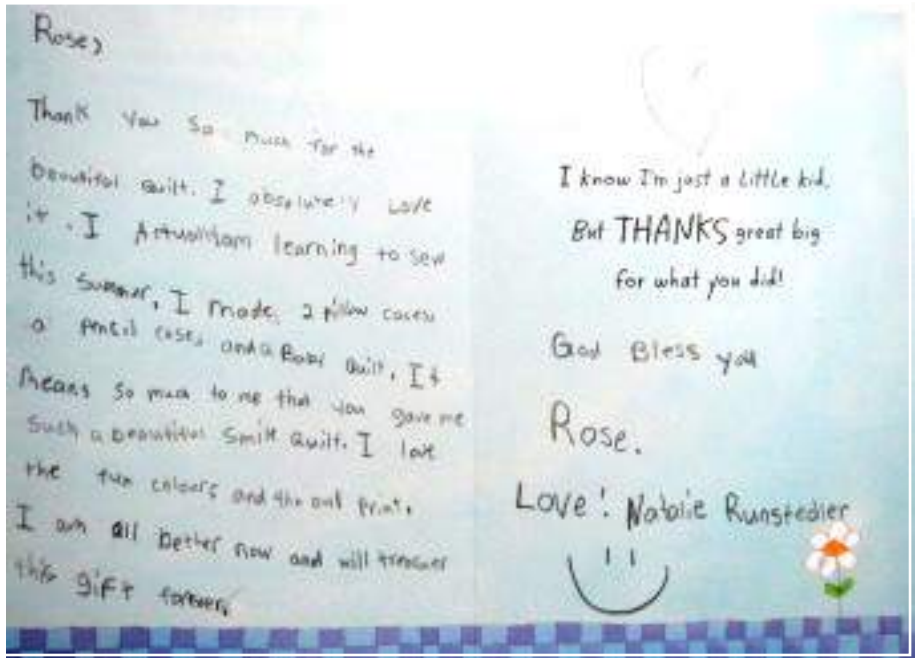 Rose,
Thank you so much for the
beautiful quilt. I absolutely Love
it. I Actually am learning to sew
this Summer, I made, 2 pillow cases
a pencil case, and a Baby Quilt, It
means so much to me that you gave me
Such a beautiful Smile Quilt. I love
the fun colours and the owl print.
I am all better now and will treasuer
this gift forever.
I know I'm just a little kid,
But THANKS great big
for what you did!
God Bless you
Rose.
Love! Natalie Runstedler